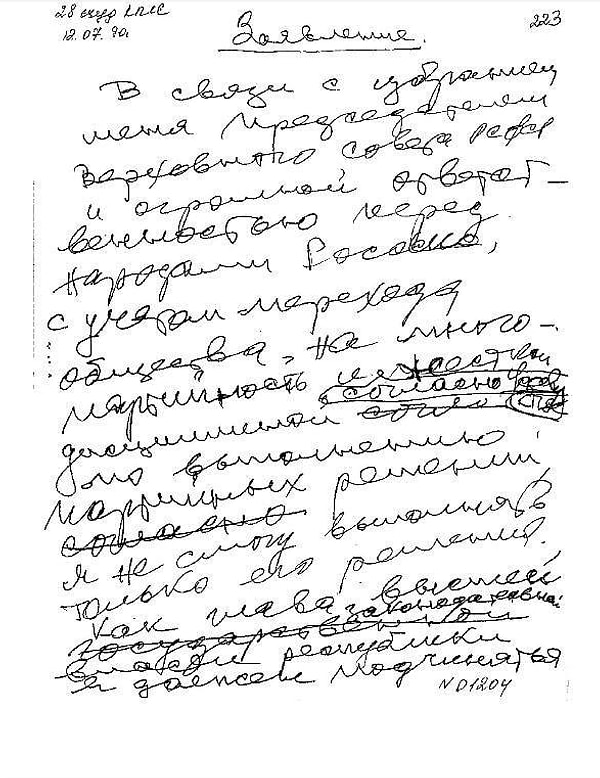 28 съезд КПСС
12.07.90г
223
Заявление.
В связи с избранием
меня Председателем
Верховного совета РСФСР
и огромной ответст-
венностью перед
народами России,
с учетом перехода
общества, на много-
партийность и жесткой
согласно
дисциплиной
по выполнению
партийных решений,
согласно
я не смогу выполнять
только его решения.
Как глава высшей
законодательной
государственной
власти республики
я должен подчиняться
N D1204